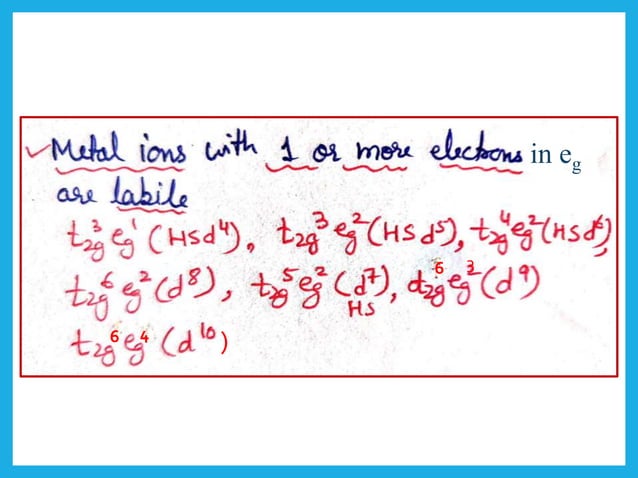 ✓Metal ions with 1 or more electrons in eg
are labile
t₂g³ eg¹ (HS d⁴), t₂g³ eg² (HS d⁵), t₂g⁴ eg² (HS d⁶),
t₂g⁶ eg² (d⁸), t₂g⁵ eg² (d⁷) HS, t₂g⁶ eg³ (d⁹)
t₂g⁶ eg⁴ (d¹⁰)